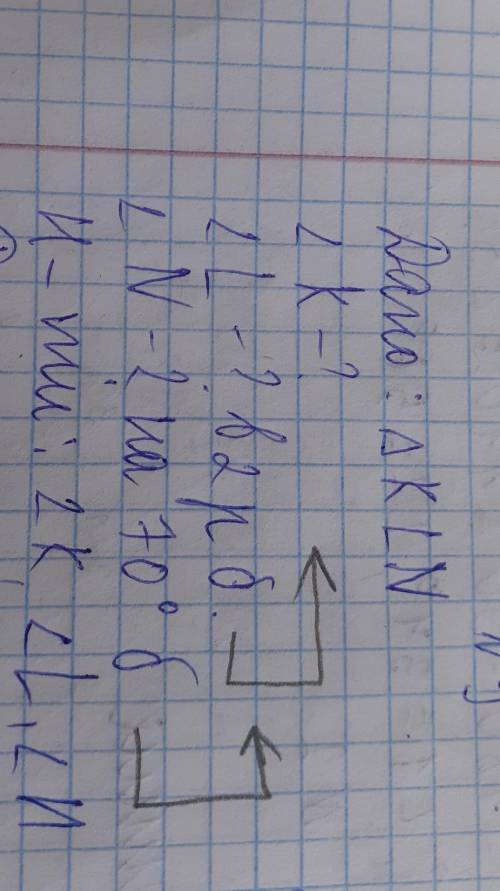 Дано: △KLN
∠K-?
∠L-? в 2 р б.
∠N-? на 70° б
Н-ти: ∠K, ∠L, ∠N